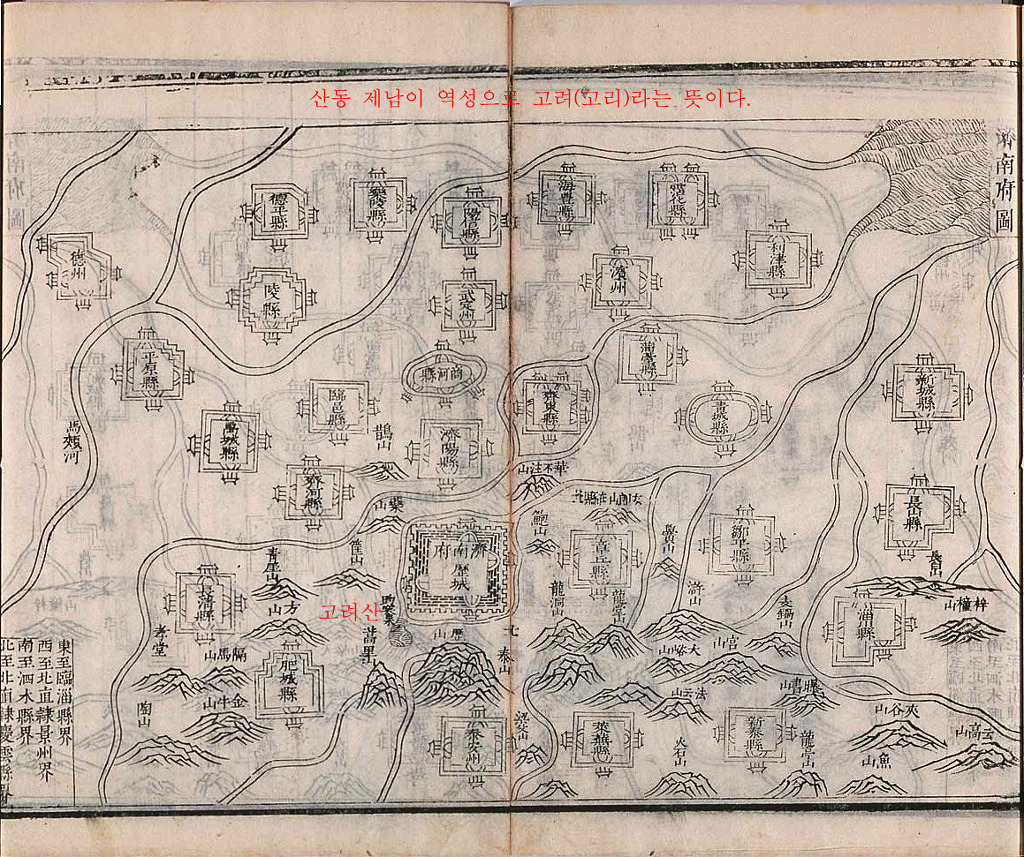 산동 제남이 역성으로 고려(고리)라는 뜻이다.
濟南府圖
德平縣
樂陵縣
陽信縣
海豊縣
霑化縣
利津縣
德州
陵縣
武定州
濱州
蒲臺縣
平原縣
商河縣
齊東縣
青城縣
新城縣
臨邑縣
禹城縣
濟陽縣
鵲山
馬頰河
齊河縣
藥山
華不注山
長山縣
鮑山
章丘縣
鄒平縣
濟南府
歷城
青崖山
方山
長清縣
고려산
蒿里山
歷山
龍洞山
長山
梓橦山
淄川縣
孝堂
隔馬山
肥城縣
金牛山
陶山
泰山
泰安州
萊蕪縣
新泰縣
宮山
法云山
夾谷山
高山
魚山
火石山
東至臨淄縣界
西至北直隷景州界
南至泗水縣界
北至北直隷慶雲縣界